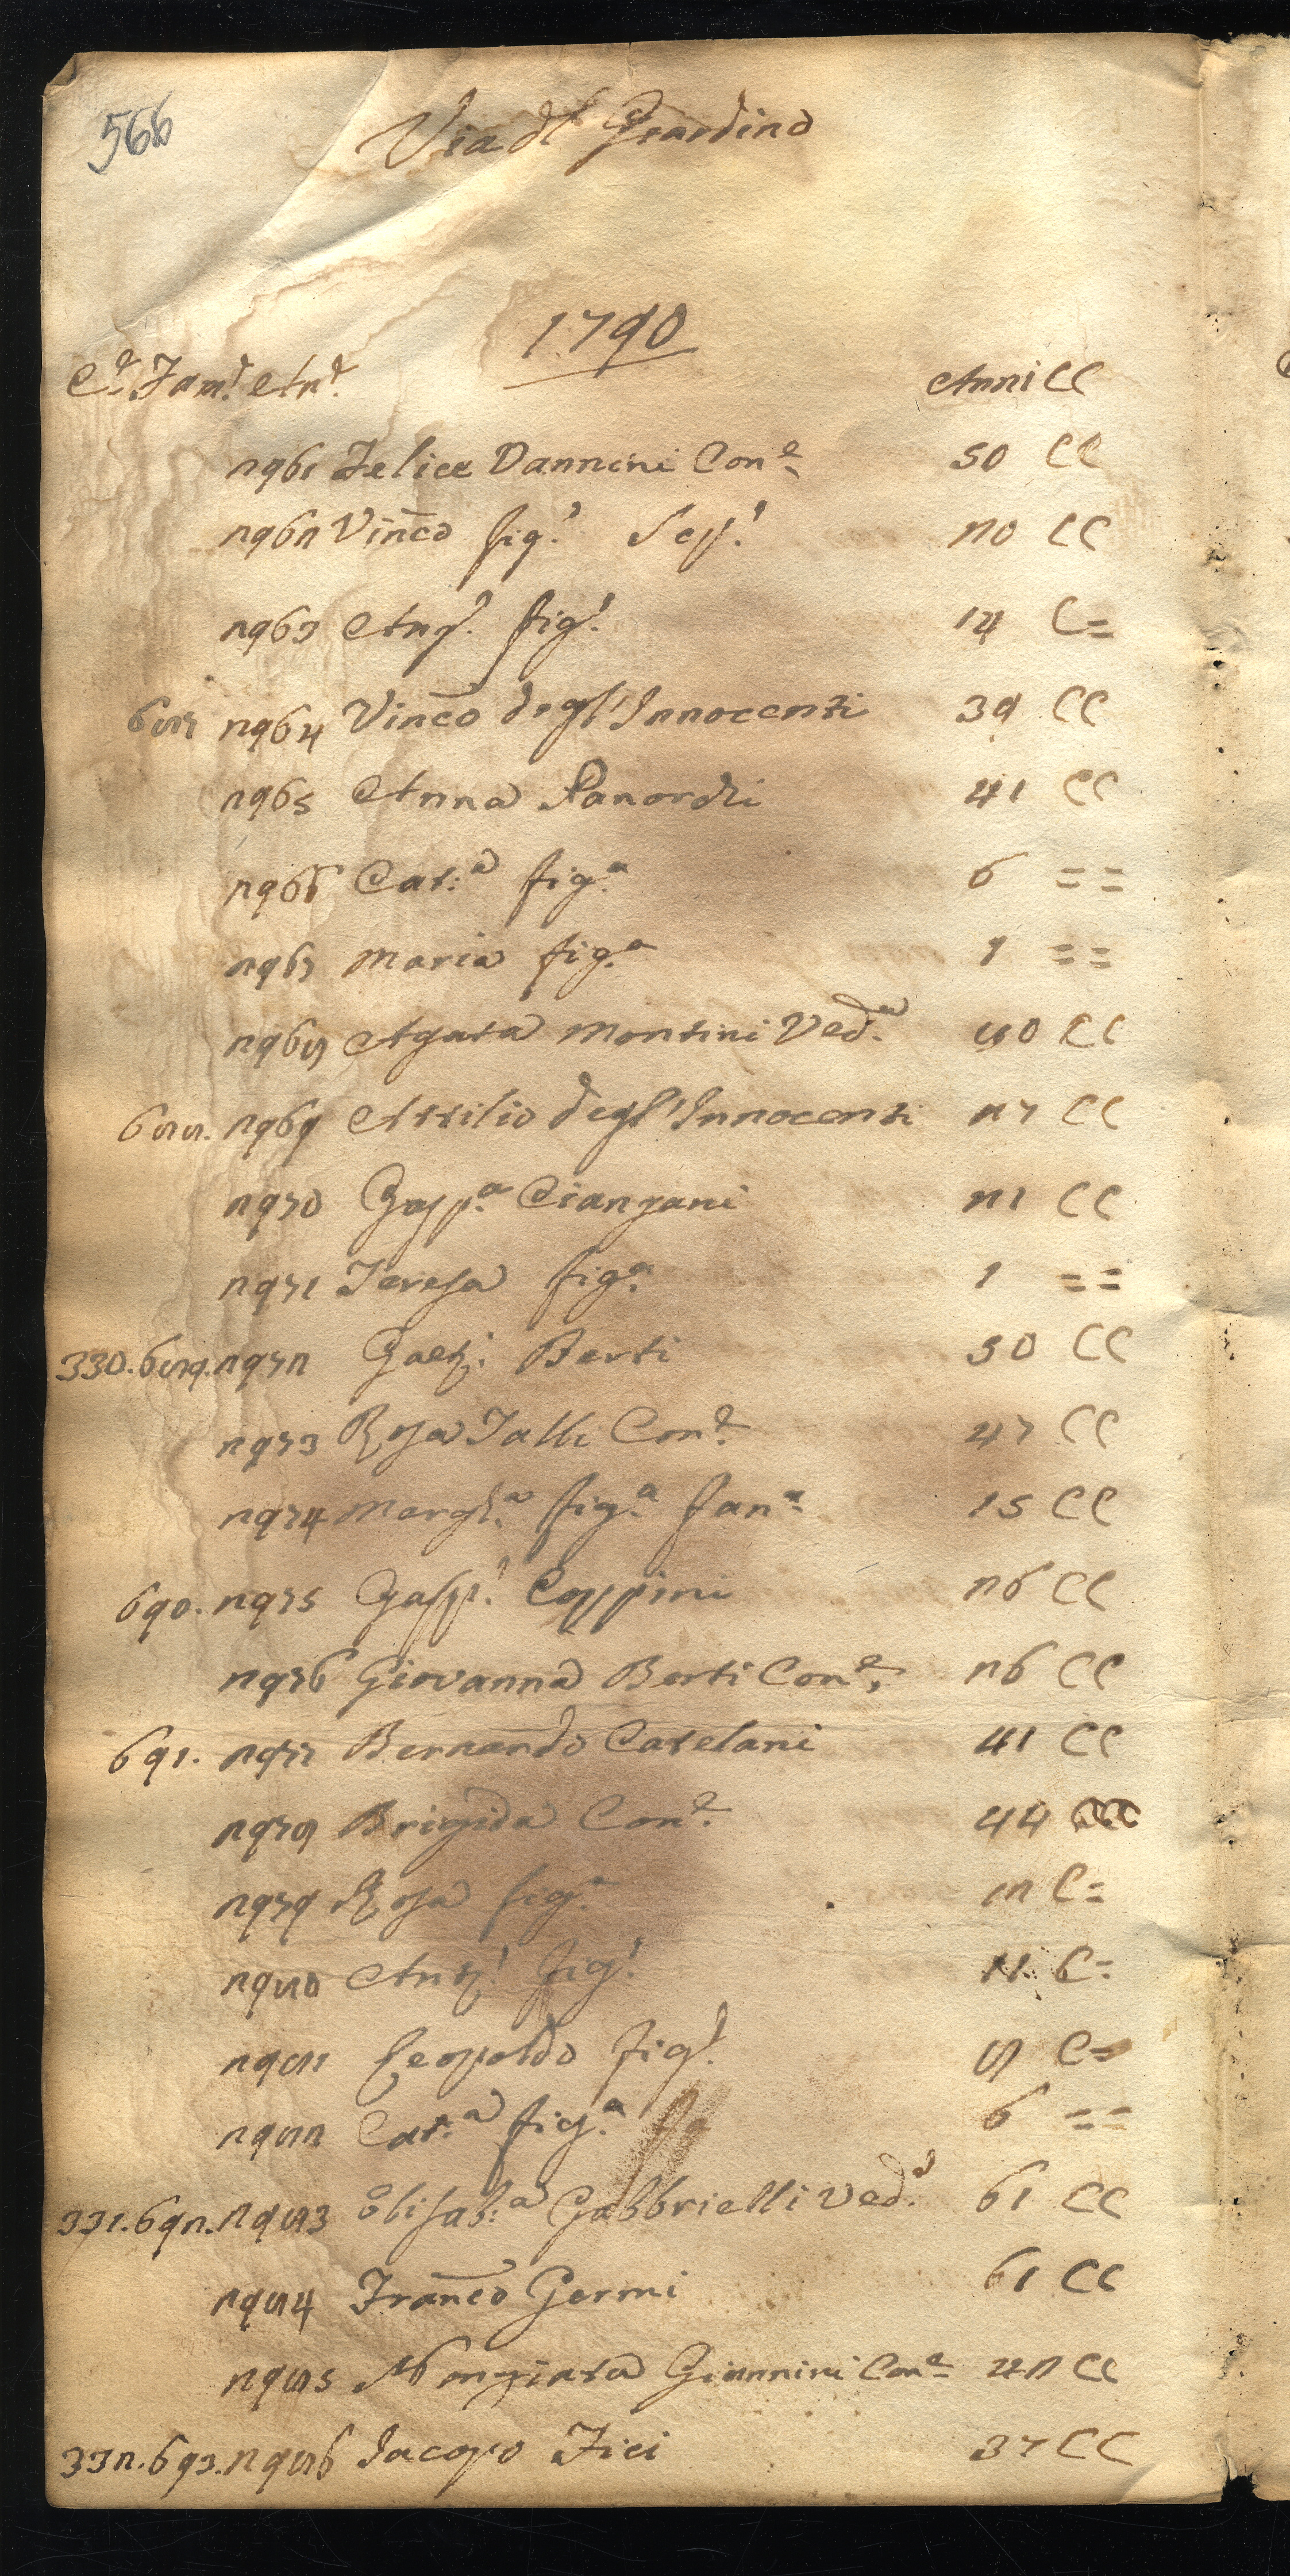 566
Via dl Giardino
1790
Cᵉ. Famᵉ. Anᵉ. Anni CC
2961 Felice Vannini Conᵉ 50 CC
2962 Vinc̄o figᵒ. Sepᵒ. 20 CC
2963 Angᵒ. figᵒ. 14 C=
687 2964 Vinc̄o degl'Innocenti 39 CC
2965 Anna 41 CC
2966 Cat:ᵃ figᵃ 6 ==
2967 Maria figᵃ 1 ==
2968 Agata Montini Vedᵃ. 80 CC
688. 2969 Attilio degl'Innocenti 27 CC
2970 Gasp.ᵃ Cianzani 21 CC
2971 Teresa figᵃ 1 ==
330. 689. 2972 Gaetᵒ. Berti 50 CC
2973 Rosa Talli Conᵉ. 47 CC
2974 Marghᵃ. figᵃ. fanᵃ. 15 CC
690. 2975 Gaspᵒ. Coppini 26 CC
2976 Giovanna Berti Conᵉ. 26 CC
691. 2977 Bernardo Catelani 41 CC
2978 Brigida Conᵉ. 44 CC
2979 Rosa figᵃ. 12 C=
2980 Antᵒ. figᵒ. 11 C=
2981 Leopoldo figᵒ. 8 C=
2982 Cat:ᵃ figᵃ. 6 ==
331. 692. 2983 Elisab:ᵃ Gabbrielli Vedᵃ. 61 CC
2984 Franc̄o Germi 61 CC
2985 Nunziata Giannini Conᵉ 42 CC
332. 693. 2986 Jacopo Fici 37 CC